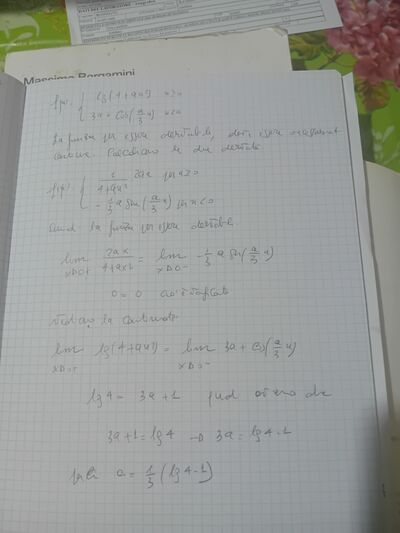 Massimo Bergamini
f(x): { lg(4+ax²) x≥0
3a + cos(a/3 x) x<0
La funzione per essere derivabile, deve essere
continua. Calcoliamo le due derivate
f'(x): { 1/(4+ax²) 2ax per x≥0
- 1/3 a sen(a/3 x) per x<0
la funzione per essere derivabile
lim x→0+ 2ax/(4+ax²) = lim x→0- - 1/3 a sen(a/3 x)
0 = 0 verificato
Vediamo la continuità
lim x→0+ lg(4+ax²) = lim x→0- 3a + cos(a/3 x)
lg4 = 3a+1 quindi
3a+1 = lg4 → 3a = lg4-1
a = 1/3 (lg4-1)